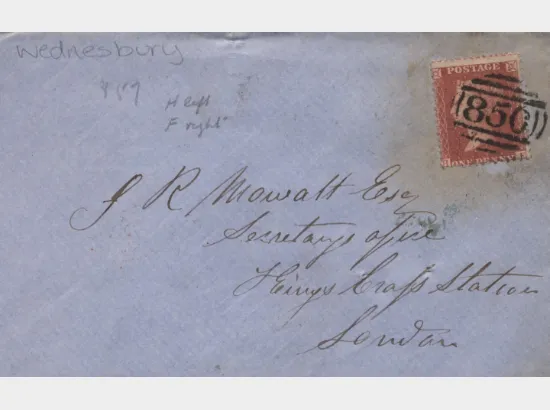 Wednesbury
H left
F right
POSTAGE
856
ONE PENNY
J R Mowatt Esq
Secretarys office
Kings Cross Station
London